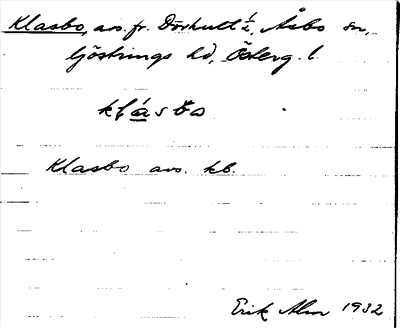 Klasbo, avs. fr. Dörhult ½, Åsbo sn,
Göstrings hd, Österg. l.
Klasbo avs. kb.
Erik Alm 1932